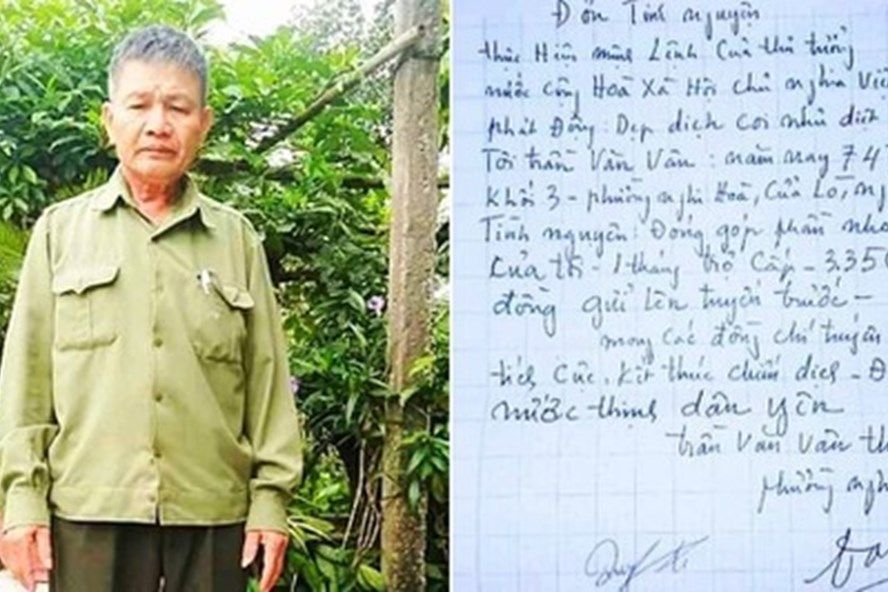 Đơn Tình nguyện
thực Hiện mệnh Lệnh Của thủ tướng
nước cộng Hoà Xã Hội chủ nghĩa Việ
phát Động: Dẹp dịch coi như diệt
Tôi trần Văn Vân: năm nay 74
Khối 3 - phường nghi Hoà, Cửa Lò, ng
Tình nguyện: Đóng góp phần nhỏ
Của tôi - 1 tháng trợ Cấp - 3.350
đồng gửi lên tuyến trước -
mong các đồng chí tuyến
tích Cực, Kết thúc chiến dịch - Đ
nước thịnh dân yên
trần Văn Vân th
phường ngh